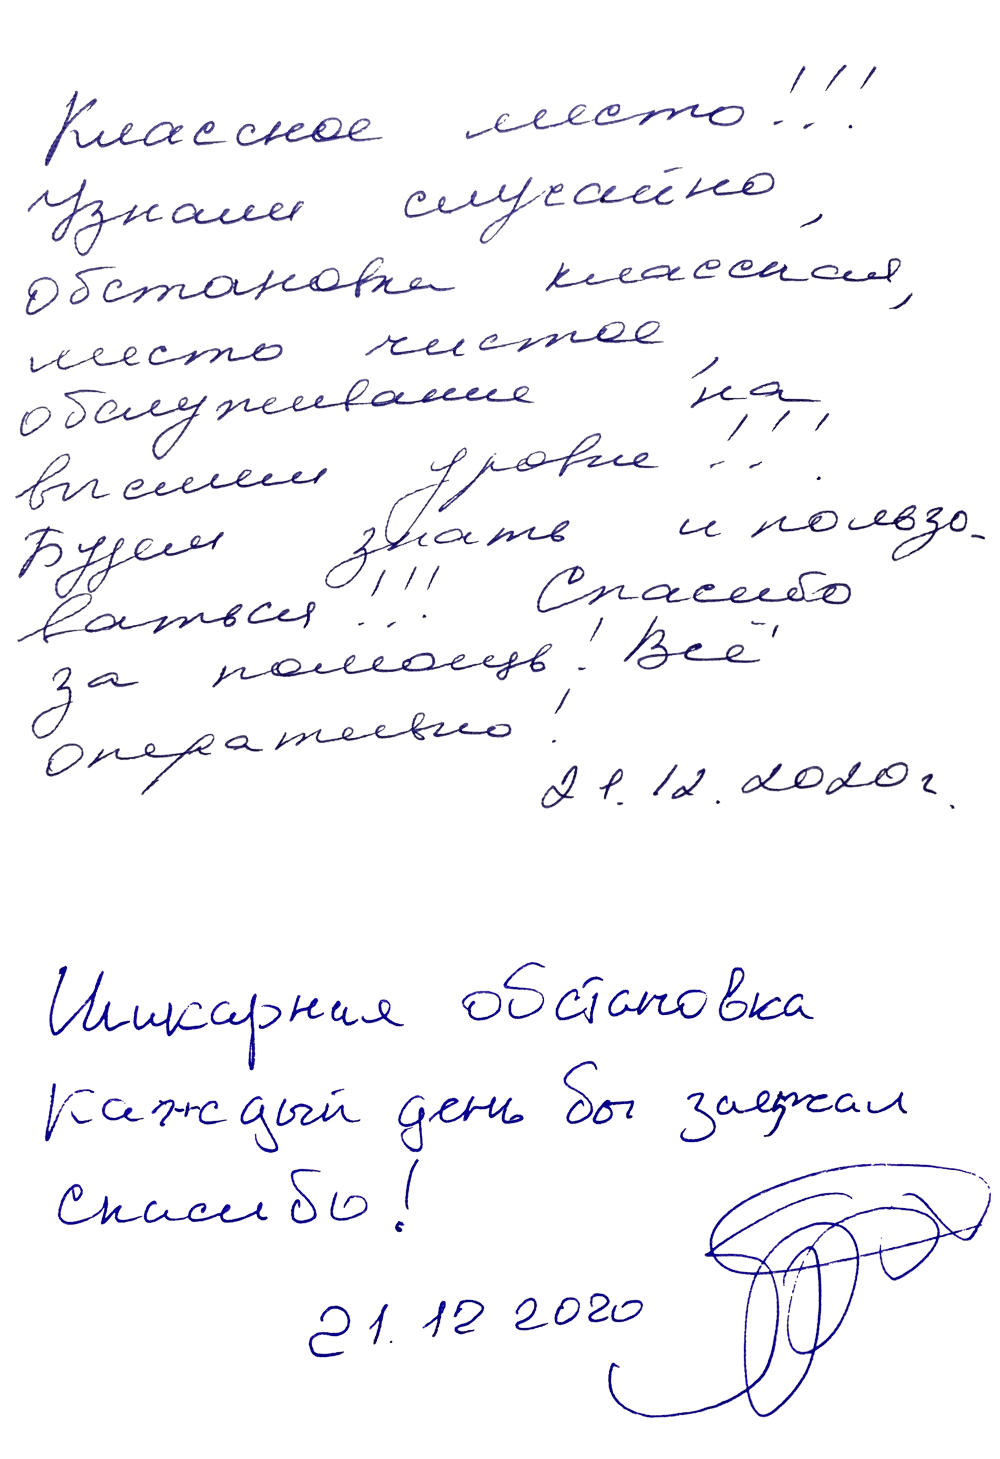 Классное место!!!
Узнали случайно,
обстановка классная,
место чистое,
обслуживание на
высшем уровне!!!
Будем знать и пользо-
ваться!!! Спасибо
за помощь! Всё
оперативно!
21.12.2020г.
Шикарная обстановка
Каждый день бы заезжал
спасибо!
21.12 2020